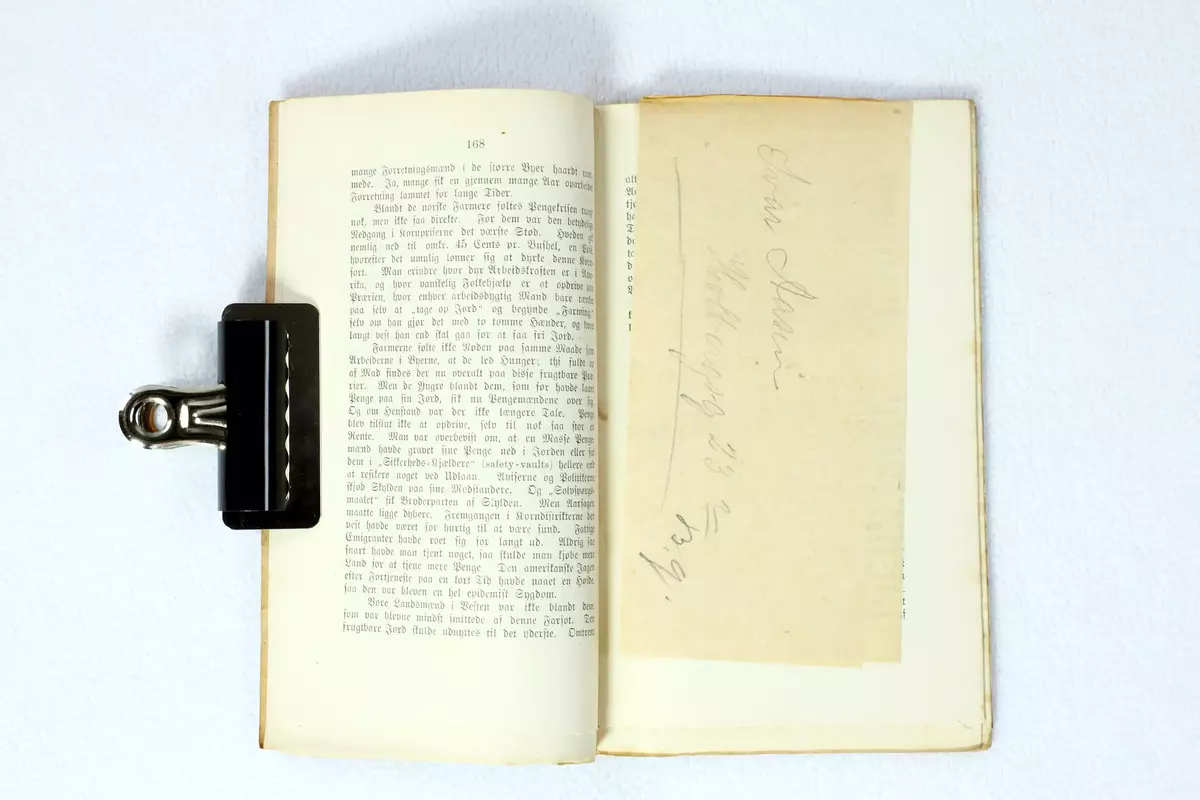 168
mange Forretningsmænd i de større Byer haardt ram-
mede. Ja, mange fik en gjennem mange Aar oparbeidet
Forretning lammet for lange Tider.
Blandt de norske Farmere føltes Pengekrisen tungt
nok, men ikke saa direkte. For dem var den betydelige
Nedgang i Kornpriserne det værste Stød. Hveden gik
nemlig ned til omkr. 45 Cents pr. Bushel, en Pris,
hvorefter det umulig lønner sig at dyrke denne Korn-
sort. Man erindre hvor dyr Arbeidskraften er i Ame-
rika, og hvor vanskelig Folkehjælp er at opdrive paa
Prærien, hvor enhver arbeidsdygtig Mand bare tænker
paa selv at „tage op Jord“ og begynde „Farming,“
selv om han gjør det med to tomme Hænder, og hvor
langt vest han end skal gaa for at faa fri Jord.
Farmerne følte ikke Nøden paa samme Maade som
Arbeiderne i Byerne, at de led Hunger; thi fuldt op
af Mad findes der nu overalt paa disse frugtbare Præ-
rier. Men de Yngre blandt dem, som før havde laant
Penge paa sin Jord, fik nu Pengemændene over sig.
Og om Henstand var der ikke længere Tale. Penge
blev tilslut ikke at opdrive, selv til nok saa stor en
Rente. Man var overbevist om, at en Masse Penge-
mænd havde gravet sine Penge ned i Jorden eller sat
dem i „Sikkerheds-Kjældere“ (safety-vaults) hellere end
at resikere noget ved Udlaan. Aviserne og Politikerne
skjød Skylden paa sine Modstandere. Og „Sølvspørgs-
maalet“ fik Broderparten af Skylden. Men Aarsagen
maatte ligge dybere. Fremgangen i Korndistrikterne der
vest havde været for hurtig til at være sund. Fattige
Emigranter havde rovet sig for langt ud. Aldrig saa
snart havde man tjent noget, saa skulde man kjøbe mere
Land for at tjene mere Penge. Den amerikanske Jagen
efter Fortjeneste paa en kort Tid havde naaet en Høide,
saa den var bleven en hel epidemisk Sygdom.
Vore Landsmænd i Vesten var ikke blandt dem,
som var blevne mindst smittede af denne Farsot. Den
frugtbare Jord skulde udnyttes til det yderste. Omtrent
Ivar Aasen
Holbergsg 23